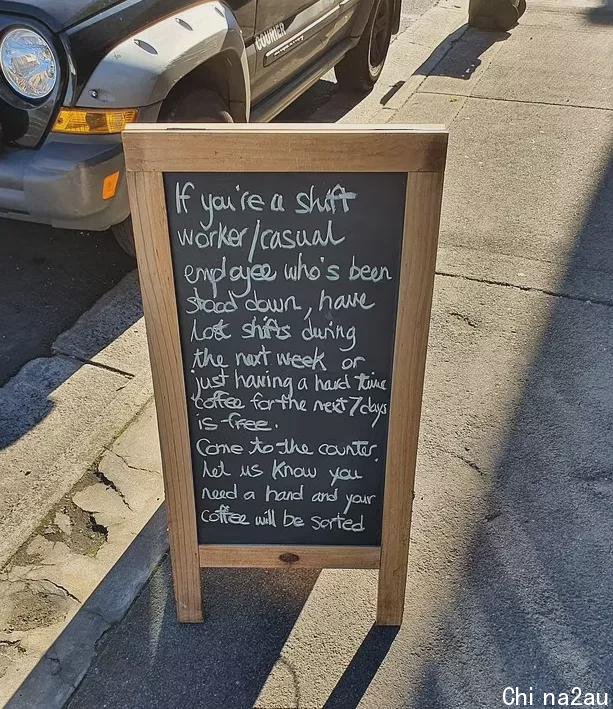 COURIER
If you're a shift
worker/casual
employee who's been
stood down, have
lost shifts during
the next week or
just having a hard time
coffee for the next 7 days
is free.
Come to the counter,
let us know you
need a hand and your
coffee will be sorted
Chi na2au